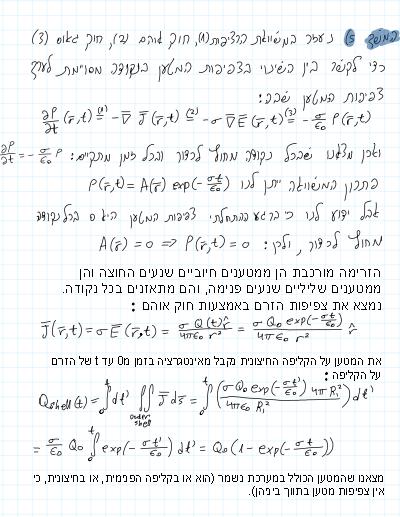 המשך 5) נעזר במשוואת הרציפות (1), חוק אוהם (2), חוק גאוס (3)
כדי לקשר בין השינוי בצפיפות המטען בנקודה מסויימת לערך
צפיפות המטען שבה:
∂ρ/∂t (r̄,t) =(1) -∇̄ J̄(r̄,t) =(2) -σ ∇̄ Ē(r̄,t) =(3) -σ/ε₀ ρ(r̄,t)
מצאנו שבכל נקודה מחוץ לכדור ובכל זמן מתקיים: ∂ρ/∂t = -σ/ε₀ ρ
פתרון המשוואה ייתן לנו ρ(r̄,t) = A(r̄) exp(-σt/ε₀)
אבל ידוע לנו כי ברגע ההתחלתי צפיפות המטען היא 0 בכל נקודה
מחוץ לכדור, ולכן: A(r̄) = 0 => ρ(r̄,t) = 0
הזרימה מורכבת הן ממטענים חיוביים שנעים החוצה והן
ממטענים שליליים שנעים פנימה, והם מתאזנים בכל נקודה.
נמצא את צפיפות הזרם באמצעות חוק אוהם :
J̄(r̄,t) = σĒ(r̄,t) = σ Q(t) r̂ / 4πε₀ r² = σ Q₀ exp(-σt/ε₀) / 4πε₀ r² r̂
את המטען על הקליפה החיצונית נקבל מאינטגרציה בזמן מ0 עד t של הזרם
על הקליפה :
Qshell(t) = ∫₀ᵗ dt' ∯outer shell J̄ ds̄ = ∫₀ᵗ (σ Q₀ exp(-σt'/ε₀) 4πR₁² / 4πε₀ R₁²) dt'
= σ/ε₀ Q₀ ∫₀ᵗ exp(-σt'/ε₀) dt' = Q₀ (1 - exp(-σt/ε₀))
מצאנו שהמטען הכולל במערכת נשמר (הוא או בקליפה הפנימית, או בחיצונית, כי
אין צפיפות מטען בתווך ביניהן).